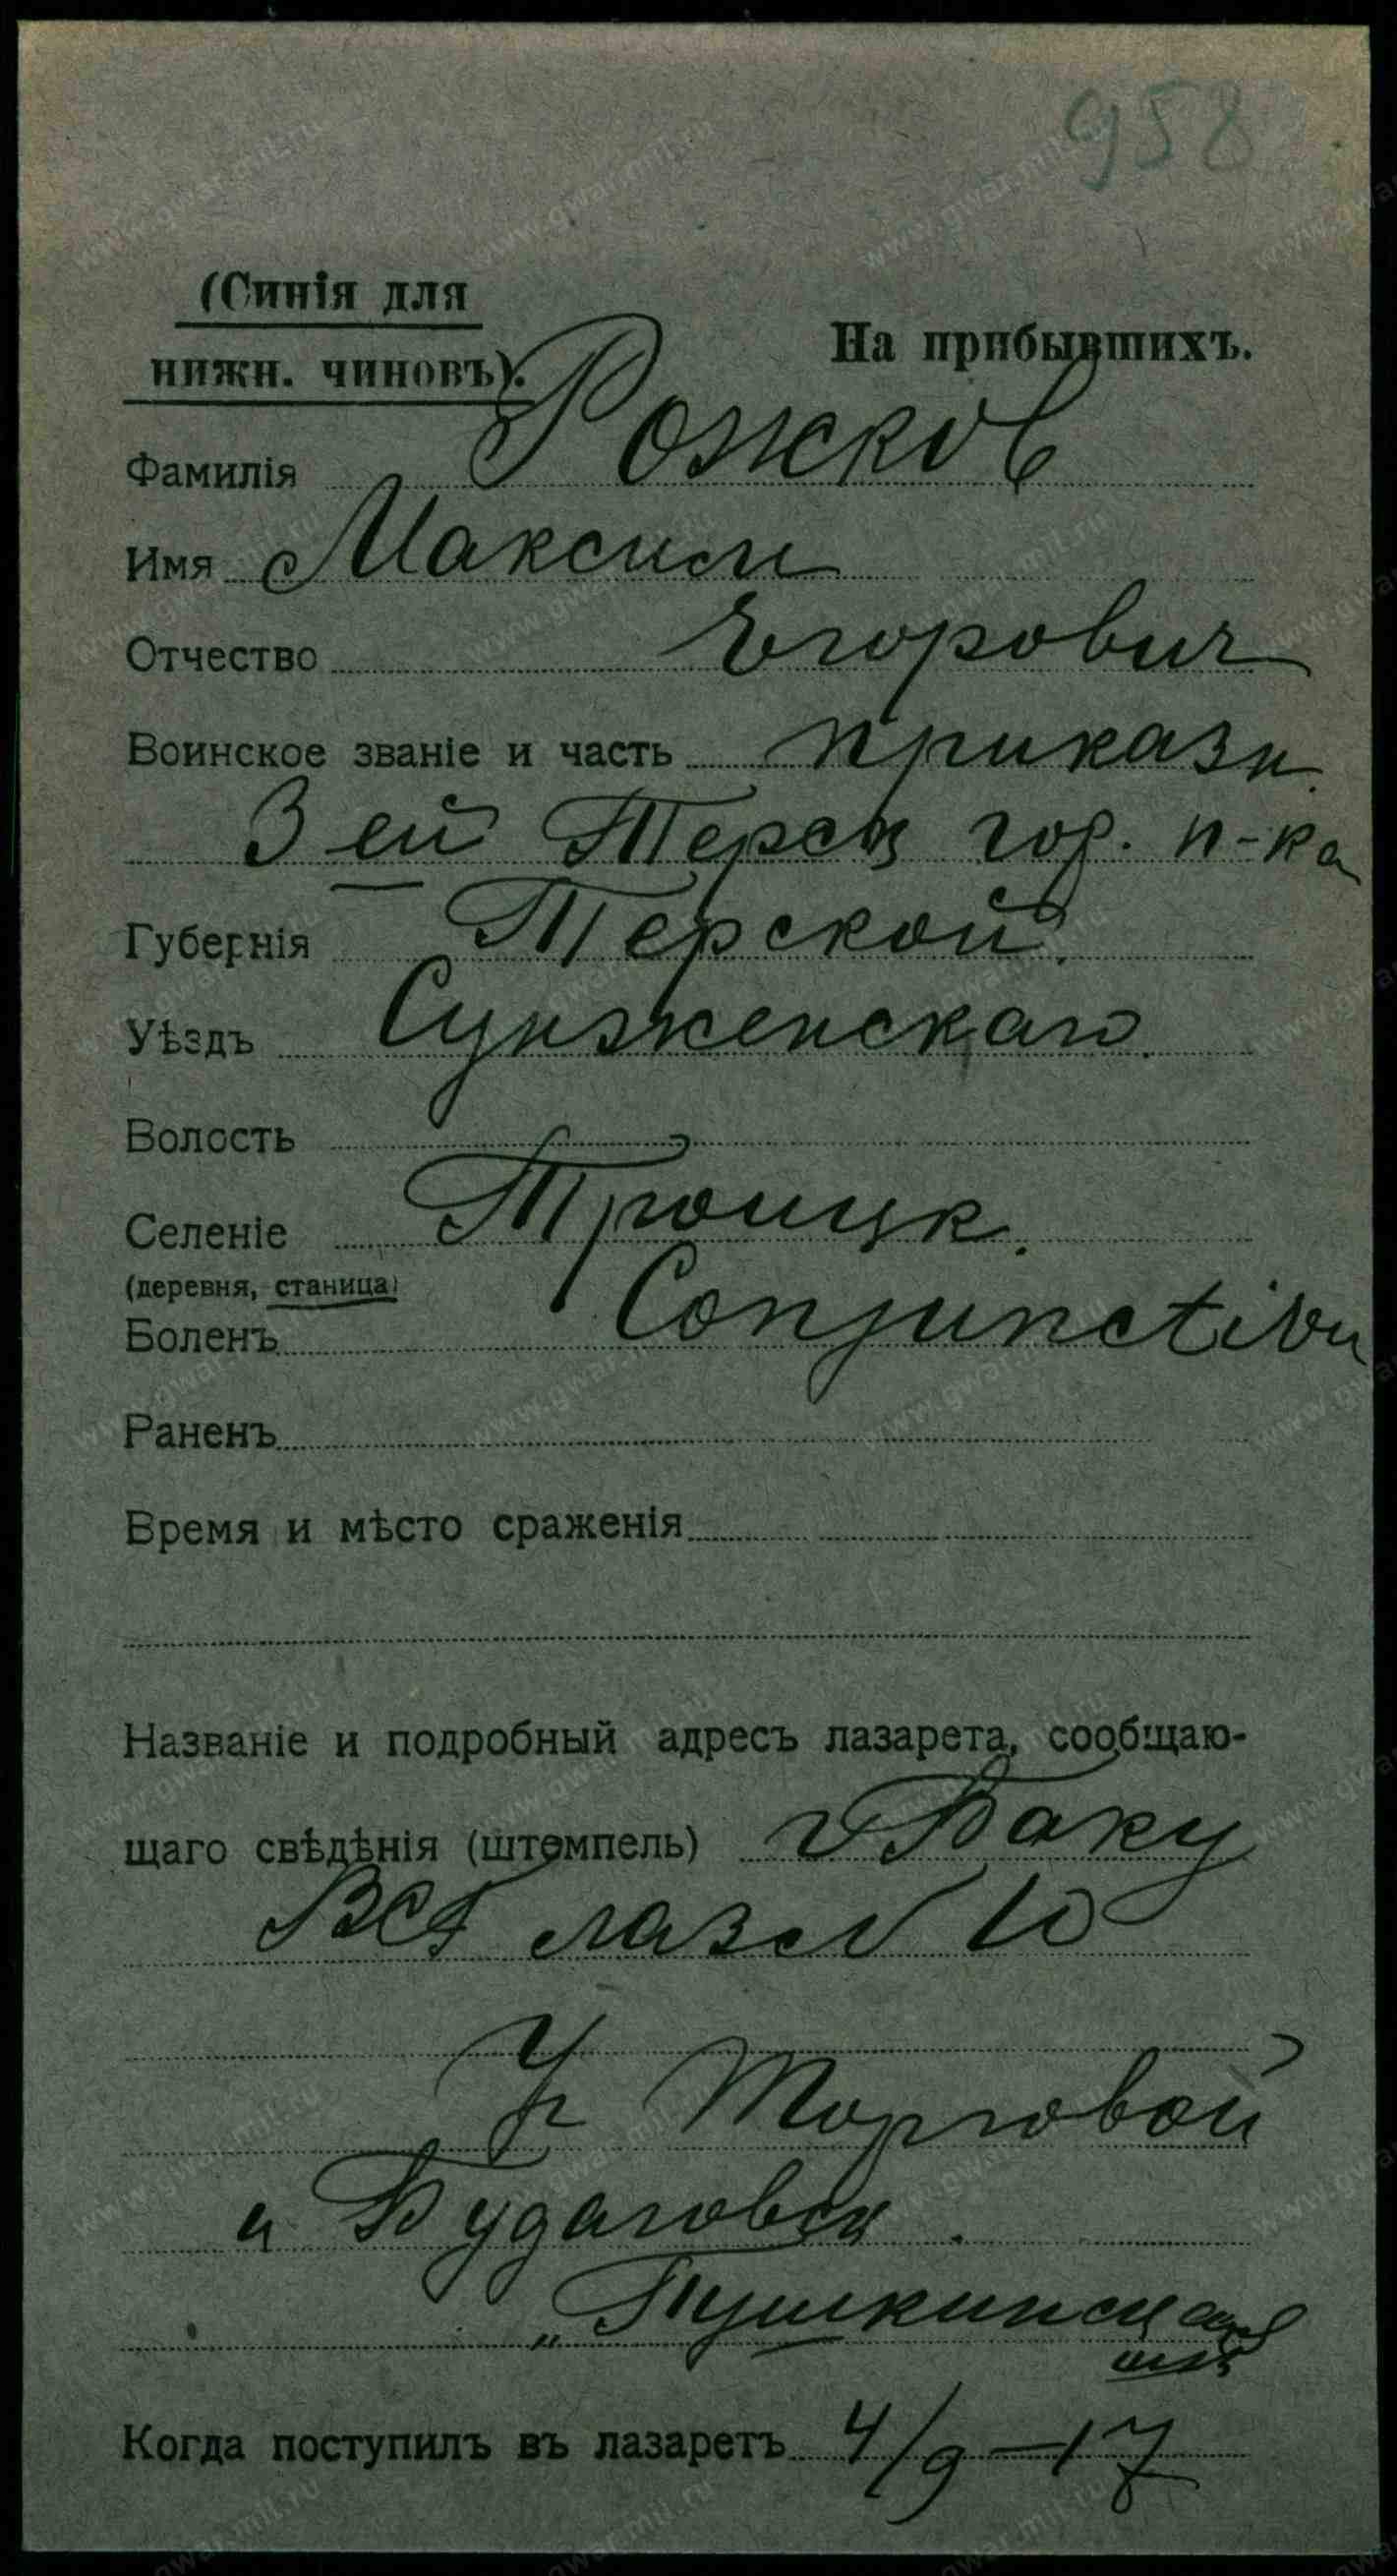 958
(Синія для
нижн. чиновъ).
На прибывшихъ.
Фамилія Рожков
Имя Максим
Отчество Егорович
Воинское званіе и часть приказн.
3 ей Терск гор. п-ка
Губернія Терской
Уѣздъ Сунженскаго
Волость
Селеніе Троицк.
(деревня, станица)
Боленъ Conjunctivu
Раненъ
Время и мѣсто сраженія
Названіе и подробный адресъ лазарета, сообщаю-
щаго свѣдѣнія (штемпель) г Баку
ВСГ лаз 10
Уг Торговой
и Будаговск.
„ Пушкинск
Когда поступилъ въ лазаретъ 4/9-17